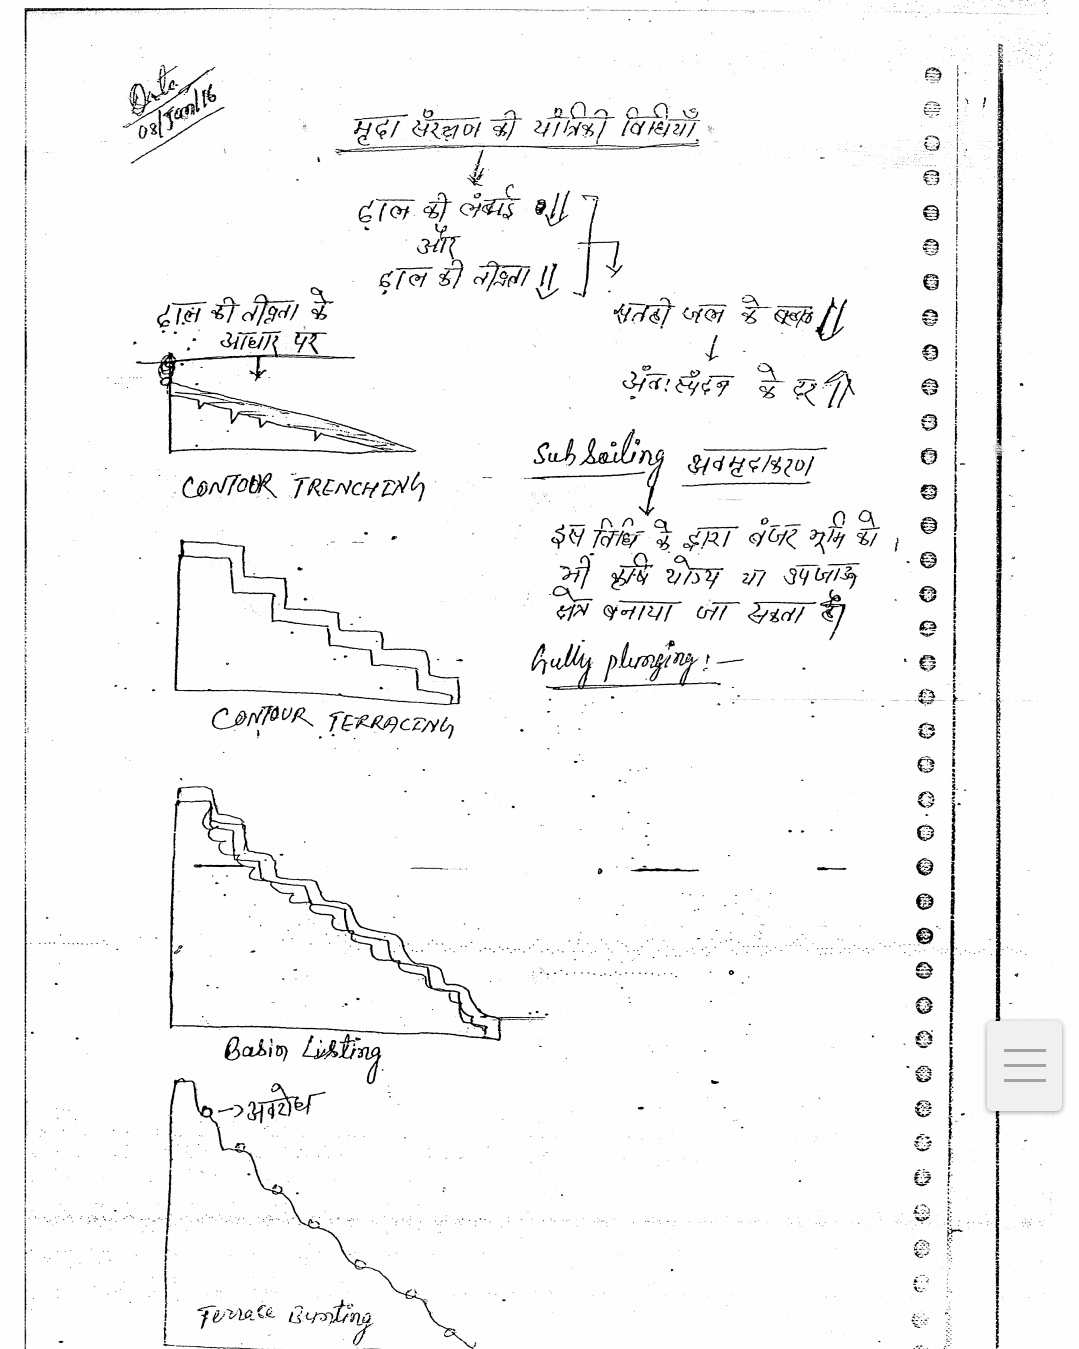 Date
08/Jan/16
मृदा संरक्षण की यांत्रिकी विधियाँ
ढ़ाल की लंबाई
और
ढ़ाल की तीव्रता
ढ़ाल की तीव्रता के
आधार पर
सतही जल के
अंतः स्पंदन के दर
CONTOUR TRENCHING
Sub Soiling अवमृदाकरण
इस विधि के द्वारा बंजर भूमि को
भी कृषि योग्य या उपजाऊ
क्षेत्र बनाया जा सकता है।
Gully plunging:-
CONTOUR TERRACING
Basin Listing
अवरोध
Terrace Bunting